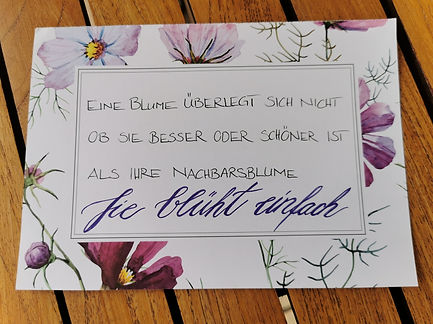 EINE BLUME ÜBERLEGT SICH NICHT
OB SIE BESSER ODER SCHÖNER IST
ALS IHRE NACHBARSBLUME
Sie blüht einfach